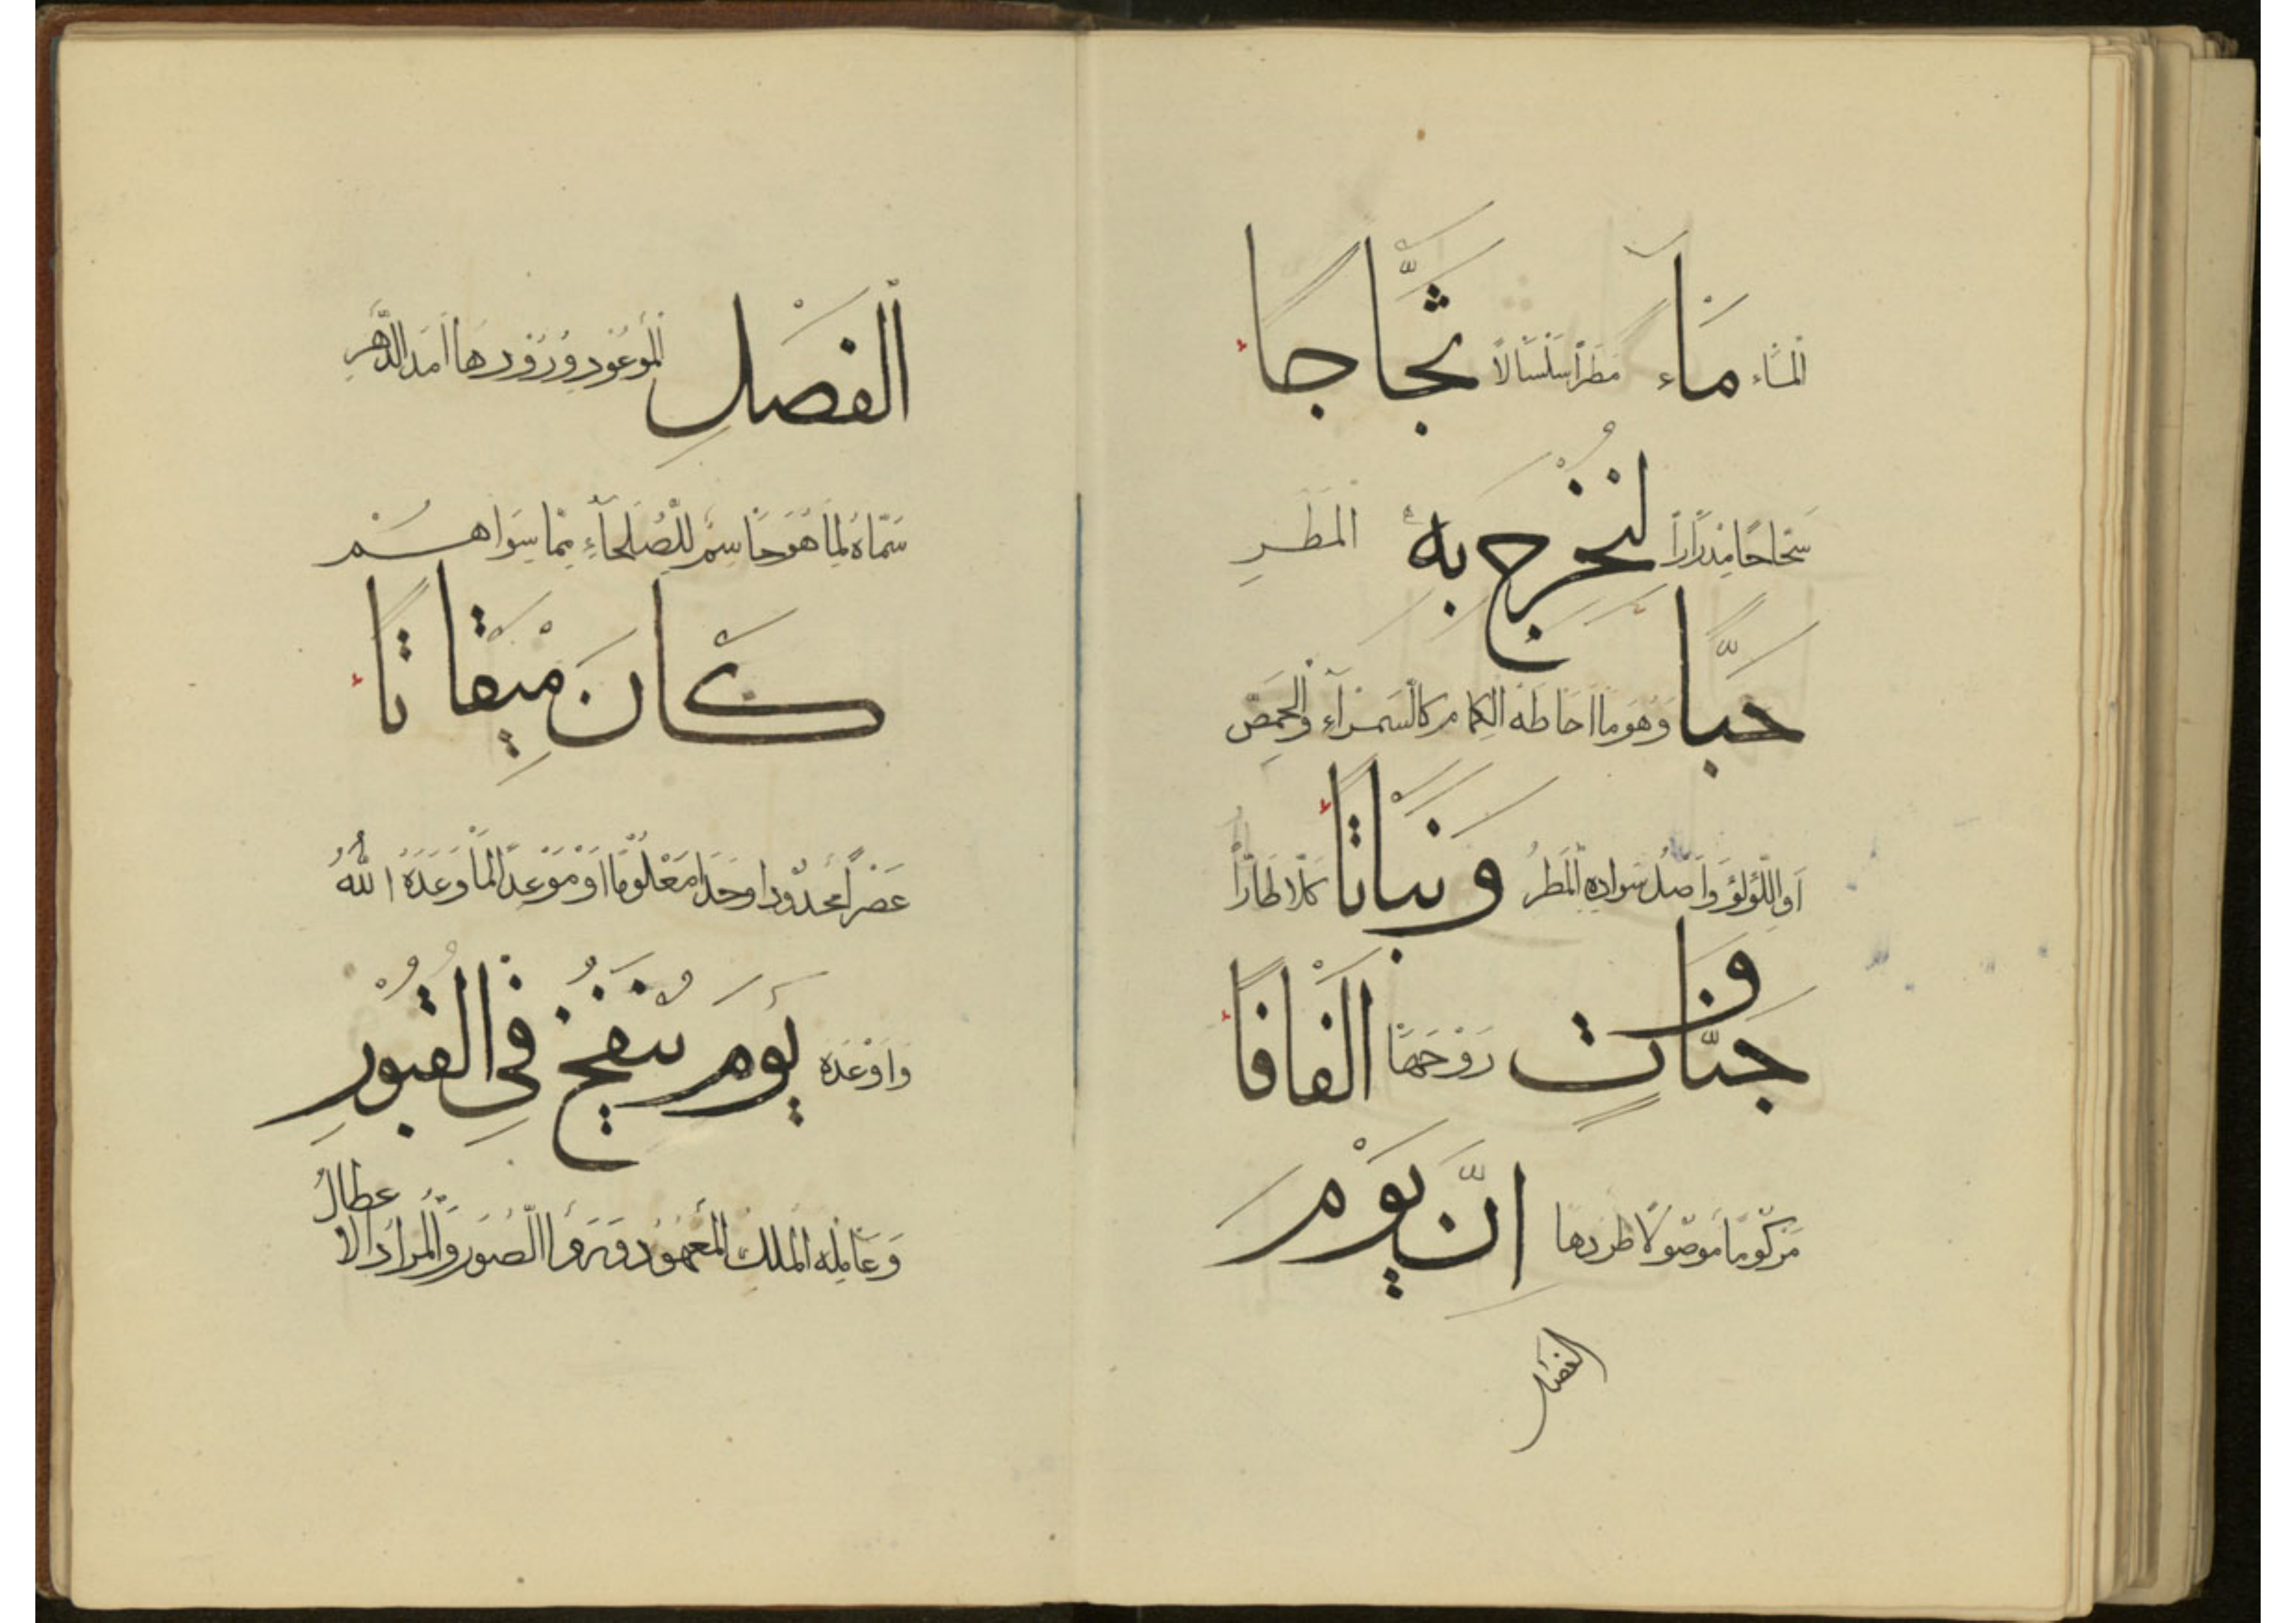 المآء مَآءً مَطَرًا سَلْسَالًا ثَجَّاجًا
سَحَّاحًا مِدْرَارًا لِنُخْرِجَ بِهِ الْمَطَرِ
حَبًّا وَهُوَ مَا اَحَاطَهُ الكِمَامُ كَالسَّمْرَآءِ وَالْحِمَّصِ
اَوِ اللُّؤْلُؤَ وَاَصْلُ سَوَادِهِ الْمَطَرُ وَنَبَاتًا كَلَأً طَارًّا
وَجَنَّاتٍ دَوْحَهَا اَلْفَافًا
مَرْكُومًا مَوْصُولًا طردها اِنَّ يَوْمَ
الفصل
الْفَصْلِ الْمَوْعُودِ وُرُوْدُهَا اَمَدَ الدَّهْرِ
سَمَّاهُ لِمَا هُوَ حَاسِمٌ لِلصُّلَحَآءِ مِمَّا سِوَاهُمْ
كَانَ مِيْقَاتًا
عَصْرًا مَحْدُودًا وَحَدًّا مَعْلُوْمًا اَوْ مَوْعِدًا لِمَا وَعَدَهُ اللّٰهُ
وَاَوْعَدَهُ يَوْمَ يُنْفَخُ فِي القُبُوْرِ
وَعَامِلُهُ الْمَلَكُ الْمَعْهُوْدُ وَرَوَوْا الصُّوَرَ وَالْمُرَادُ الْا
عطالُ